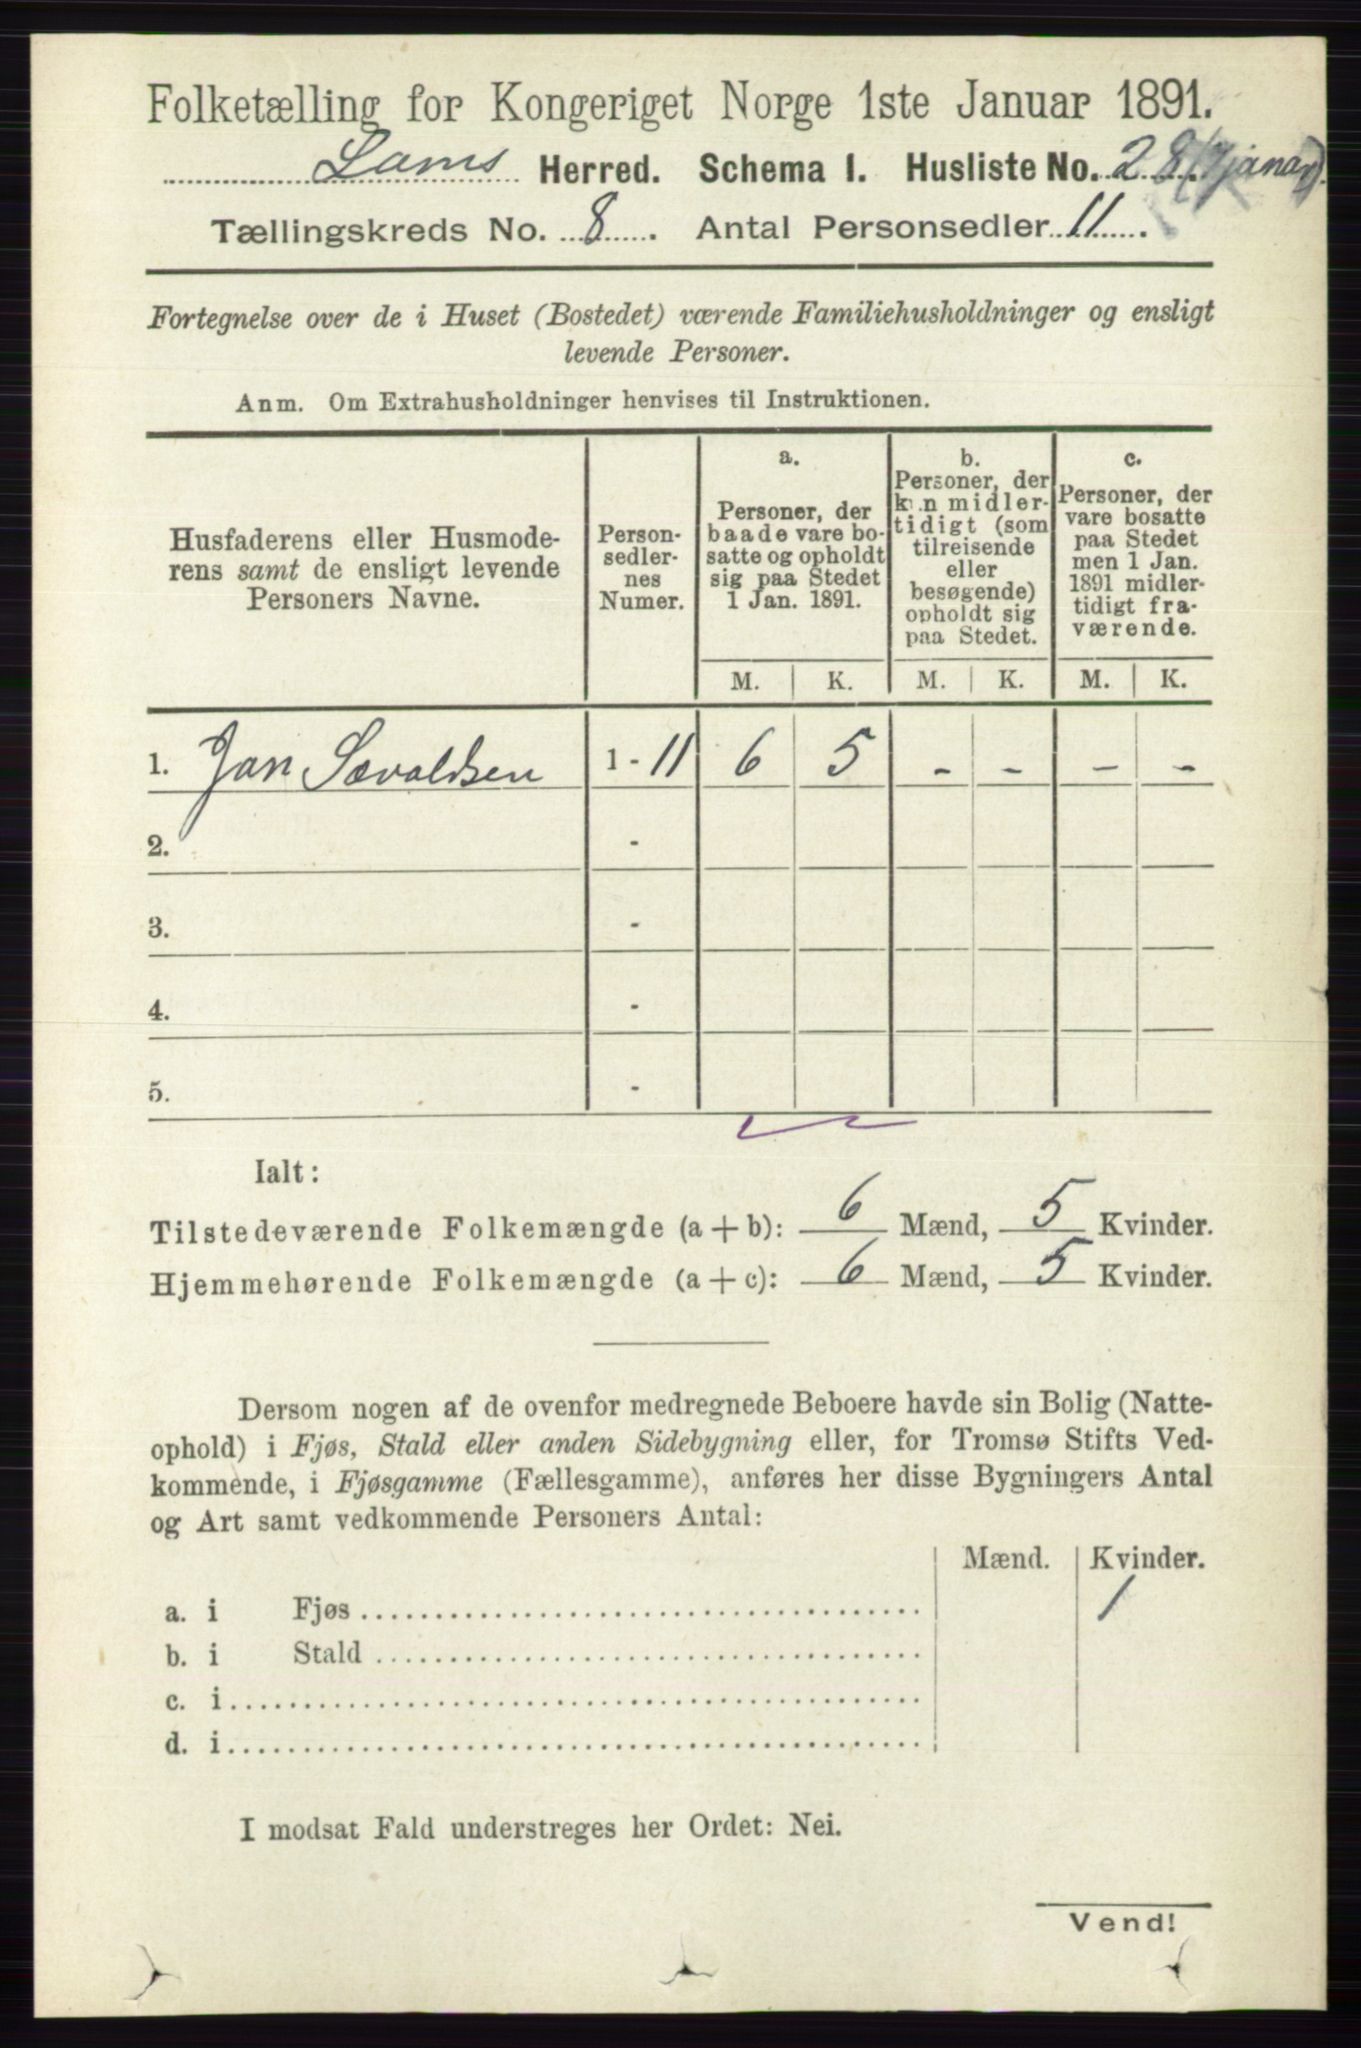 Folketælling for Kongeriget Norge 1ste Januar 1891.
Loms Herred. Schema I. Husliste No. 28
Tællingskreds No. 8. Antal Personsedler 11.
Fortegnelse over de i Huset (Bostedet) værende Familiehusholdninger og ensligt
levende Personer.
Anm. Om Extrahusholdninger henvises til Instruktionen.
Husfaderens eller Husmode-
rens samt de ensligt levende
Personers Navne.
Person-
sedler-
nes
Numer.
a.
Personer, der
baade vare bo-
satte og opholdt
sig paa Stedet
1 Jan. 1891.
b.
Personer, der
kun midler-
tidigt (som
tilreisende
eller
besøgende)
opholdt sig
paa Stedet.
c.
Personer, der
vare bosatte
paa Stedet
men 1 Jan.
1891 midler-
tidigt fra-
værende.
M. K. M. K. M. K.
1. Jan Sævaldsen 1 - 11 6 5 - - - -
2. -
3. -
4. -
5. -
Ialt:
Tilstedeværende Folkemængde (a + b): 6 Mænd, 5 Kvinder.
Hjemmehørende Folkemængde (a + c): 6 Mænd, 5 Kvinder.
Dersom nogen af de ovenfor medregnede Beboere havde sin Bolig (Natte-
ophold) i Fjøs, Stald eller anden Sidebygning eller, for Tromsø Stifts Ved-
kommende, i Fjøsgamme (Fællesgamme), anføres her disse Bygningers Antal
og Art samt vedkommende Personers Antal:
Mænd. Kvinder.
a. i Fjøs 1
b. i Stald
c. i
d. i
I modsat Fald understreges her Ordet: Nei.
Vend!